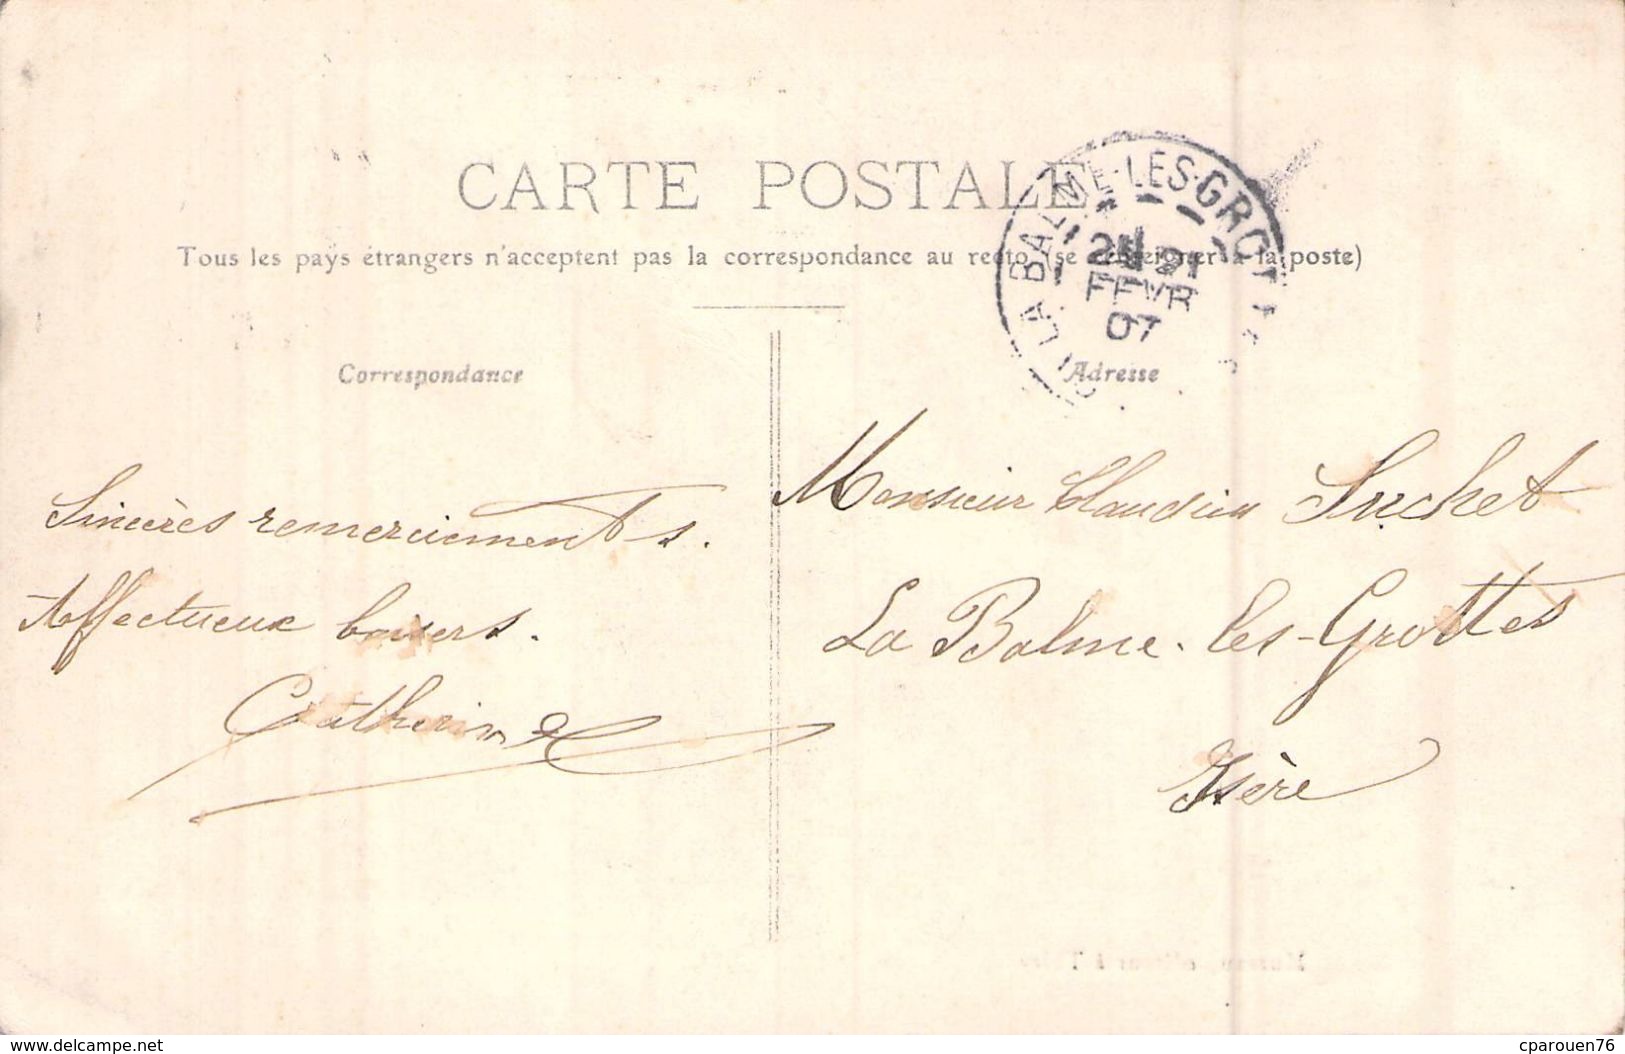 CARTE POSTALE
Tous les pays étrangers n'acceptent pas la correspondance au recto (se renseigner à la poste)
LA BALME-LES-GROTTES
21
FEVR
07
Correspondance
Adresse
Sincères remerciements.
Affectueux baisers.
Catherine
Monsieur Claudius Suchet
La Balme-les-Grottes
Isère
www.delcampe.net
cparouen76